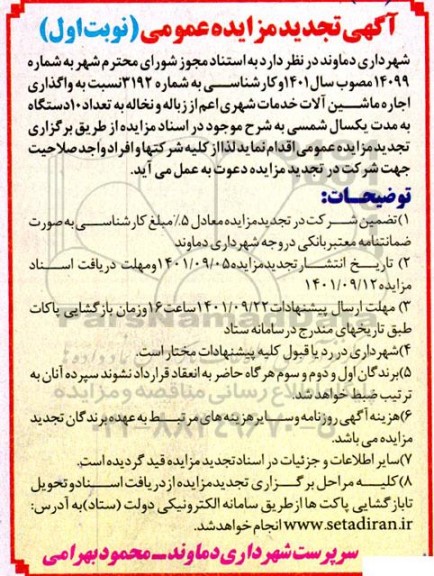 آگهی تجدید مزایده عمومی (نوبت اول)
شهرداری دماوند در نظر دارد به استناد مجوز شورای محترم شهر به شماره
۱۴۰۹۹مصوب سال۱۴۰۱و کارشناسی به شماره ۳۱۹۲نسبت به واگذاری
اجاره ماشین آلات خدمات شهری اعم از زباله و نخاله به تعداد۱۰دستگاه
به مدت یکسال شمسی به شرح موجود در اسناد مزایده از طریق برگزاری
تجدید مزایده عمومی اقدام نماید لذا از کلیه شرکتها و افراد واجد صلاحیت
جهت شرکت در تجدید مزایده دعوت به عمل می آید.
توضیحات:
۱)تضمین شرکت در تجدید مزایده معادل ۵٪مبلغ کارشناسی به صورت
ضمانتنامه معتبر بانکی در وجه شهرداری دماوند
۲) تاریخ انتشار تجدید مزایده۱۴۰۱/۰۹/۰۵ومهلت دریافت اسناد
مزایده۱۴۰۱/۰۹/۱۲
۳) مهلت ارسال پیشنهادات۱۴۰۱/۰۹/۲۲ساعت۱۶وزمان بازگشایی پاکات
طبق تاریخهای مندرج در سامانه ستاد
۴)شهرداری در رد یا قبول کلیه پیشنهادات مختار است.
۵)برندگان اول و دوم و سوم هرگاه حاضر به انعقاد قرارداد نشوند سپرده آنان به
ترتیب ضبط خواهد شد.
۶)هزینه آگهی روزنامه وسایر هزینه های مرتبط به عهده برندگان تجدید
مزایده می باشد.
۷)سایر اطلاعات و جزئیات در اسناد تجدید مزایده قید گردیده است.
۸)کلیه مراحل برگزاری تجدید مزایده از دریافت اسناد و تحویل
تا بازگشایی پاکت ها از طریق سامانه الکترونیکی دولت (ستاد)به آدرس:
www.setadiran.ir انجام خواهد شد.
سرپرست شهرداری دماوند ـ محمود بهرامی